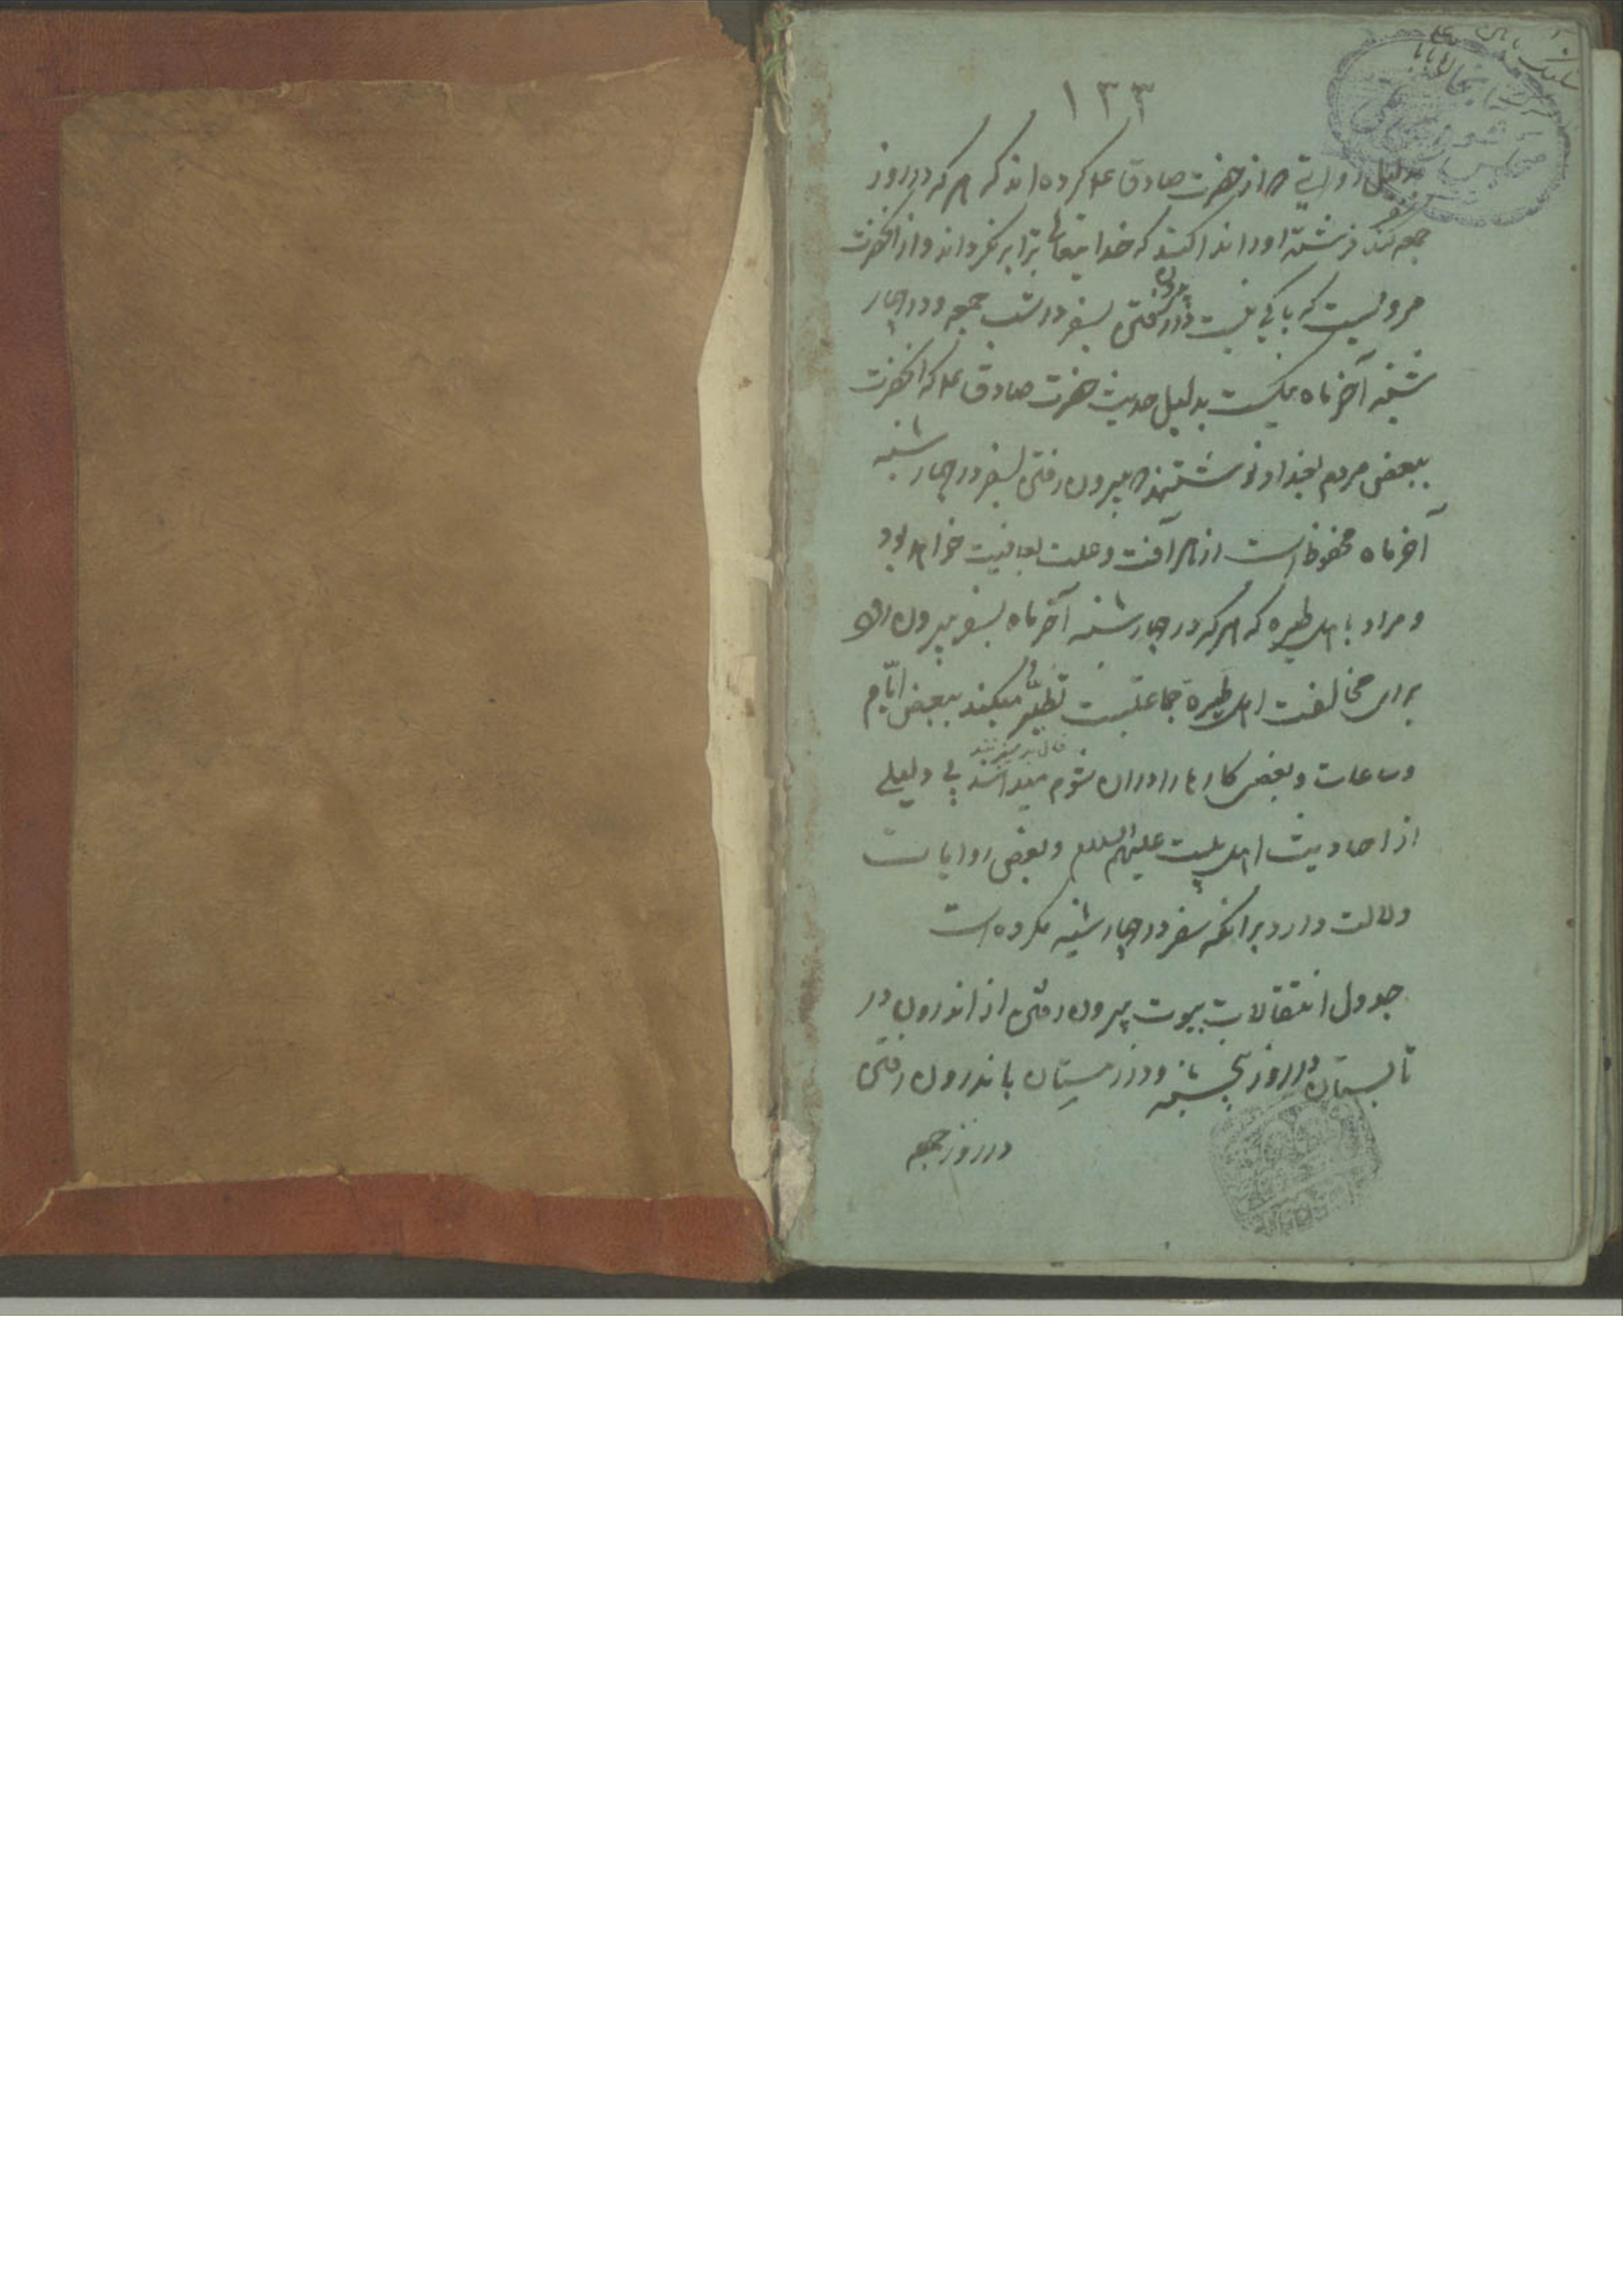 ۱۳۳
بدلیل روایتی که از حضرت صادق ع کرده‌اند که هر که در روز
جمعه کند فرشته او را ندا کند که خدایتعالی ترا برنگرداند و از آنحضرت
مرویست که باکی نیست در بیرون رفتن بسفر در شب جمعه و در چهار
شنبه آخر ماه نیکست بدلیل حدیث حضرت صادق ع که آنحضرت
ببعضی مردم بغداد نوشتند که بیرون رفتن بسفر در چهارشنبه
آخر ماه محفوظ است از هر آفت و علت بعافیت خواهد بود
و مراد باهل طیره که هر که در چهارشنبه آخر ماه بسفر بیرون رود
برای مخالفت اهل طیره جماعتیست تطیر میکنند ببعضی ایّام
فال بد میزنند
وساعات و بعضی کارها را در ان شوم میدانند بی دلیلی
از احادیث اهل بیت علیهم السلام و بعضی روایات
دلالت دارد بر انکه سفر در چهارشنبه مکروه است
جدول انتقالات بیوت بیرون رفتن از اندرون در
تابستان در روز پنجشنبه و در زمستان باندرون رفتن
در روز جمعه